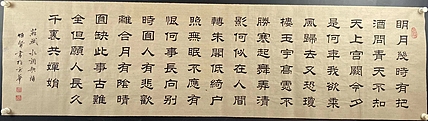 明月幾時有把
酒問青天不知
天上宮闕今夕
是何年我欲乘
風歸去又恐瓊
樓玉宇高處不
勝寒起舞弄清
影何似在人間
轉朱閣低綺户
照無眠不應有
恨何事長向别
時圓人有悲歡
離合月有陰晴
圓缺此事古難
全但願人長久
千裏共嬋娟
水調歌頭